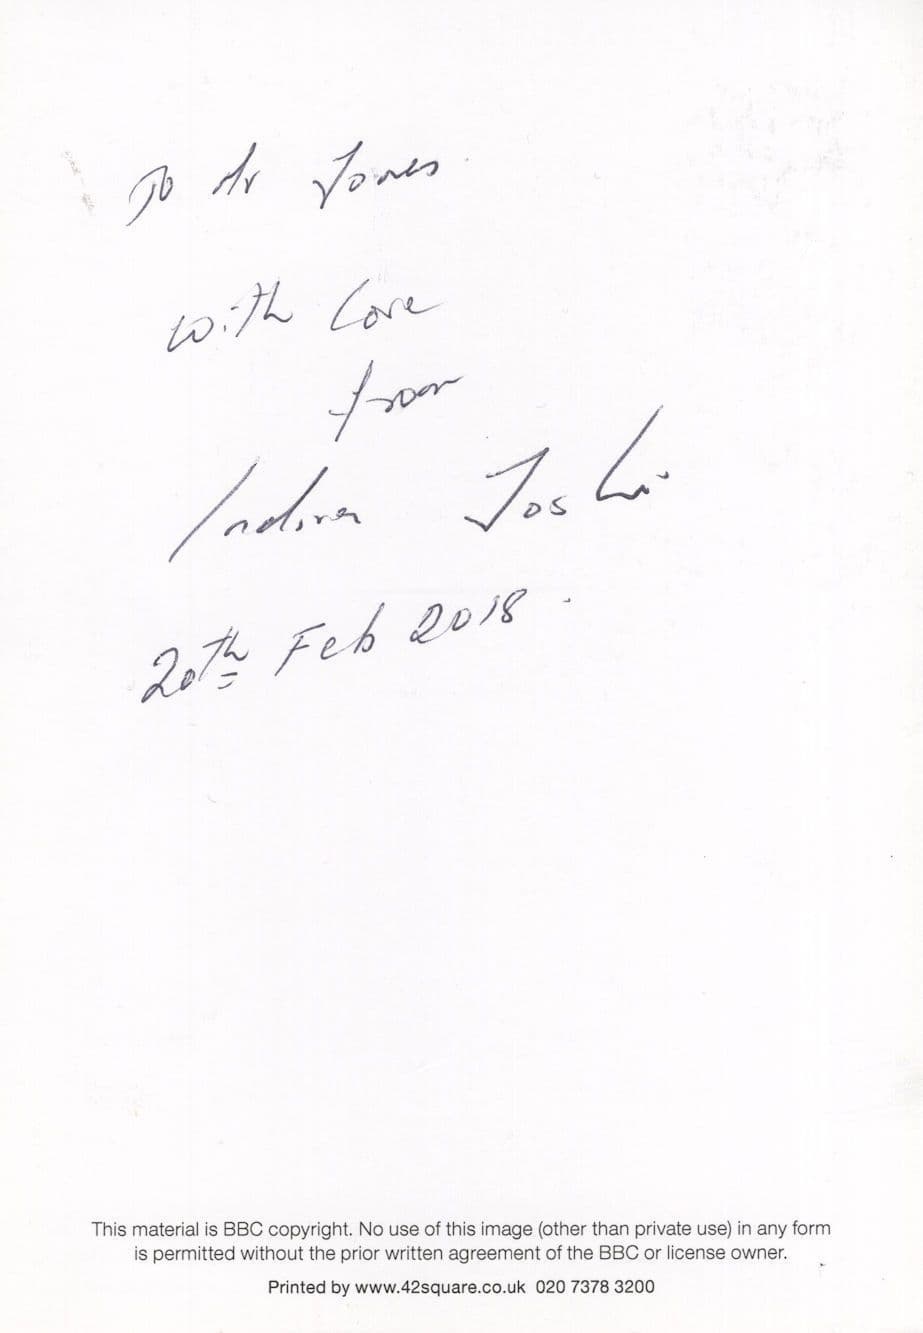 To Mr Jones
with love
from
Indira Joshi
20th Feb 2018.
This material is BBC copyright. No use of this image (other than private use) in any form
is permitted without the prior written agreement of the BBC or license owner.
Printed by www.42square.co.uk 020 7378 3200